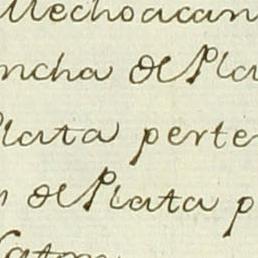 Mechoacan
ncha de Pla
lata perte
n de Plata p